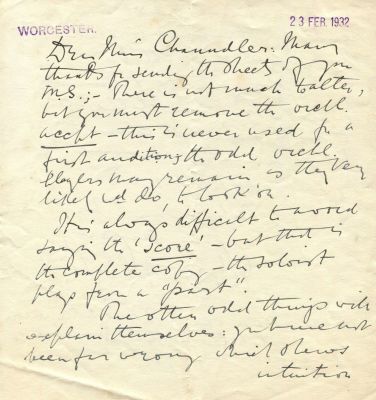 WORCESTER.
23 FEB. 1932
Dear Miss Chaundler: Many
thanks for sending the sheets of your
M.S.;- There is not much to alter,
but you must remove the orch!.
accpt - this is never used for a
first audition; the odd orch!.
players may remain as they very
likely wd do, to 'look on'.
It is always difficult to avoid
saying the 'score' - but that is
the complete copy - the soloist
plays from a "part".
The other odd things will
explain themselves: you have not
been far wrong which shews
intuition